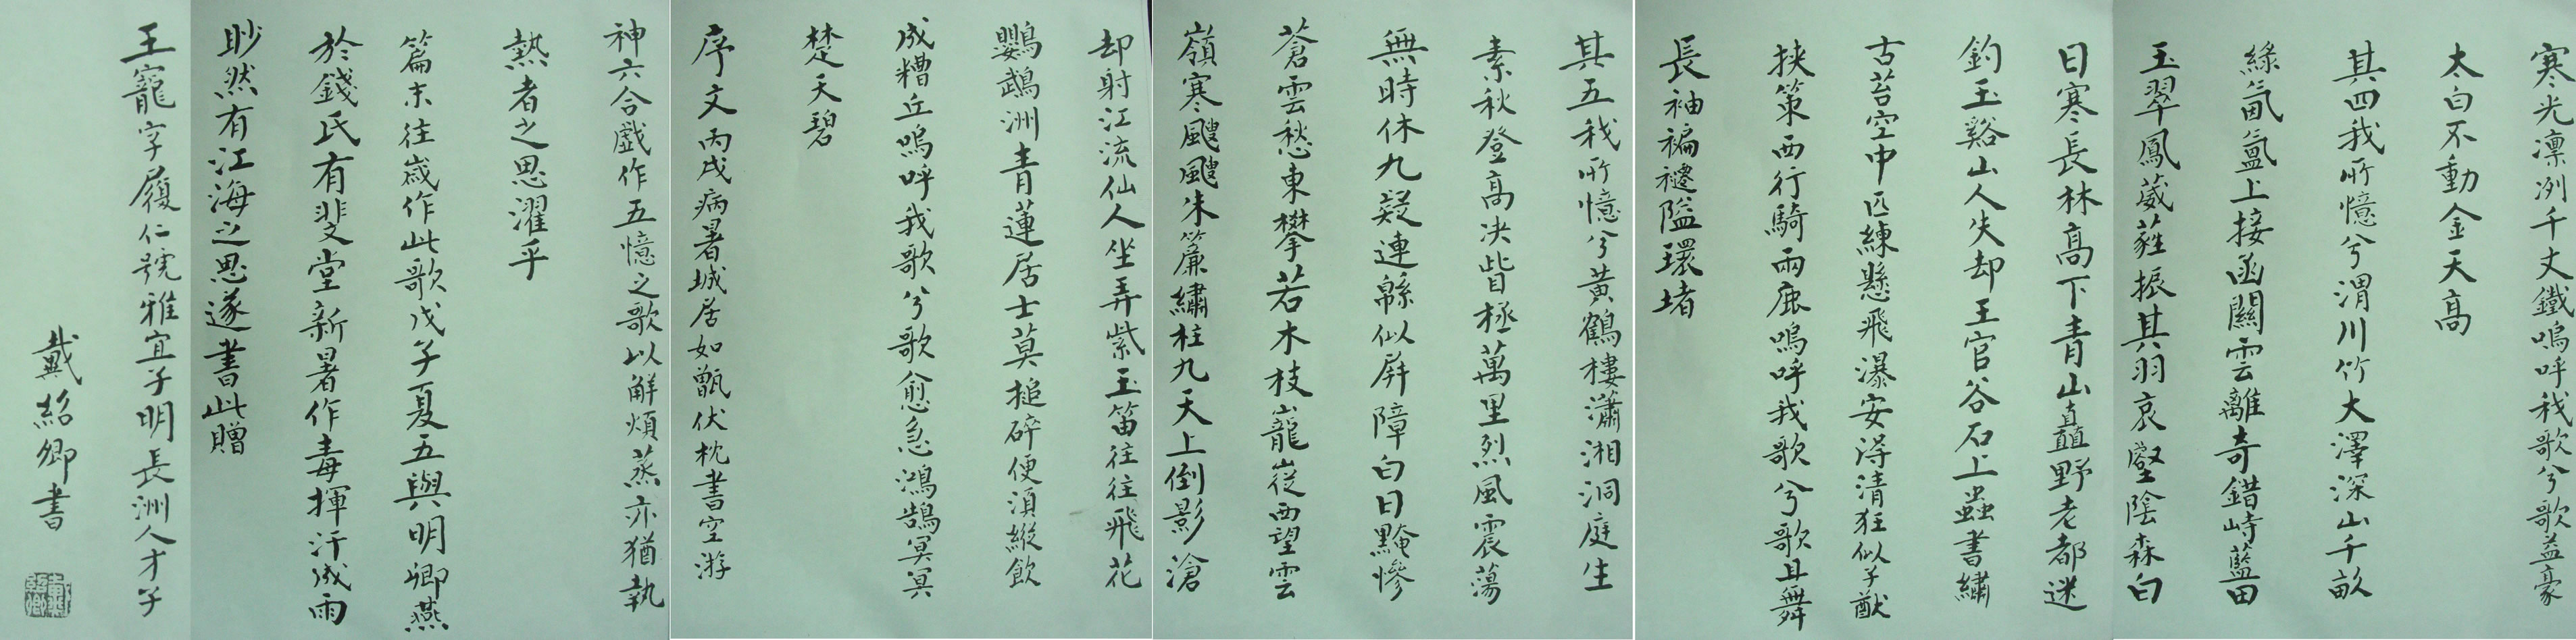 寒光凛冽千丈鐵嗚呼我歌兮歌益豪
太白不動金天高
其四我所憶兮渭川竹大澤深山千畝
綠氤氳上接函關雲離奇錯峙藍田
玉翠鳳葳蕤振其羽哀壑陰森白
日寒長林高下青山矗野老都迷
釣玉谿山人失却王官谷石上蟲書繡
古苔空中匹練懸飛瀑安得清狂似子猷
挾策西行騎兩鹿嗚呼我歌兮歌且舞
長袖褊襹隘環堵
其五我所憶兮黃鶴樓瀟湘洞庭生
素秋登高決眥極萬里烈風震蕩
無時休九疑連緜似屏障白日黤慘
蒼雲愁東攀若木枝巃嵸西望雲
嶺寒颼颼朱簾繡柱九天上倒影滄
却射江流仙人坐弄紫玉笛往往飛花
鸚鵡洲青蓮居士莫搥碎便須縱飲
成糟丘嗚呼我歌兮歌愈急鴻鵠冥冥
楚天碧
序文丙戌病暑城居如甑伏枕書空游
神六合戲作五憶之歌以解煩蒸亦猶執
熱者之思濯乎
篇末往歲作此歌戊子夏五與明卿燕
於錢氏有斐堂新暑作毒揮汗成雨
眇然有江海之思遂書此贈
王寵字履仁號雅宜子明長洲人才子
戴紹卿書